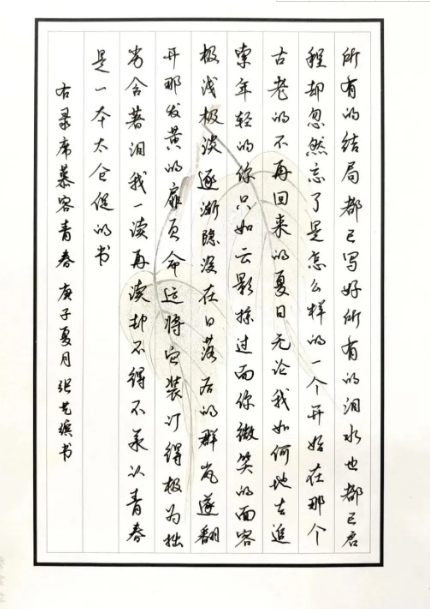 所有的结局都已写好所有的泪水也都已启
程却忽然忘了是怎么样的一个开始在那个
古老的不再回来的夏日无论我如何地去追
索年轻的你只如云影掠过而你微笑的面容
极浅极淡逐渐隐没在日落后的群岚遂翻
开那发黄的扉页命运将它装订得极为拙
劣含着泪我一读再读却不得不承认青春
是一本太仓促的书
右录席慕容青春 庚子夏月 张艺缤书